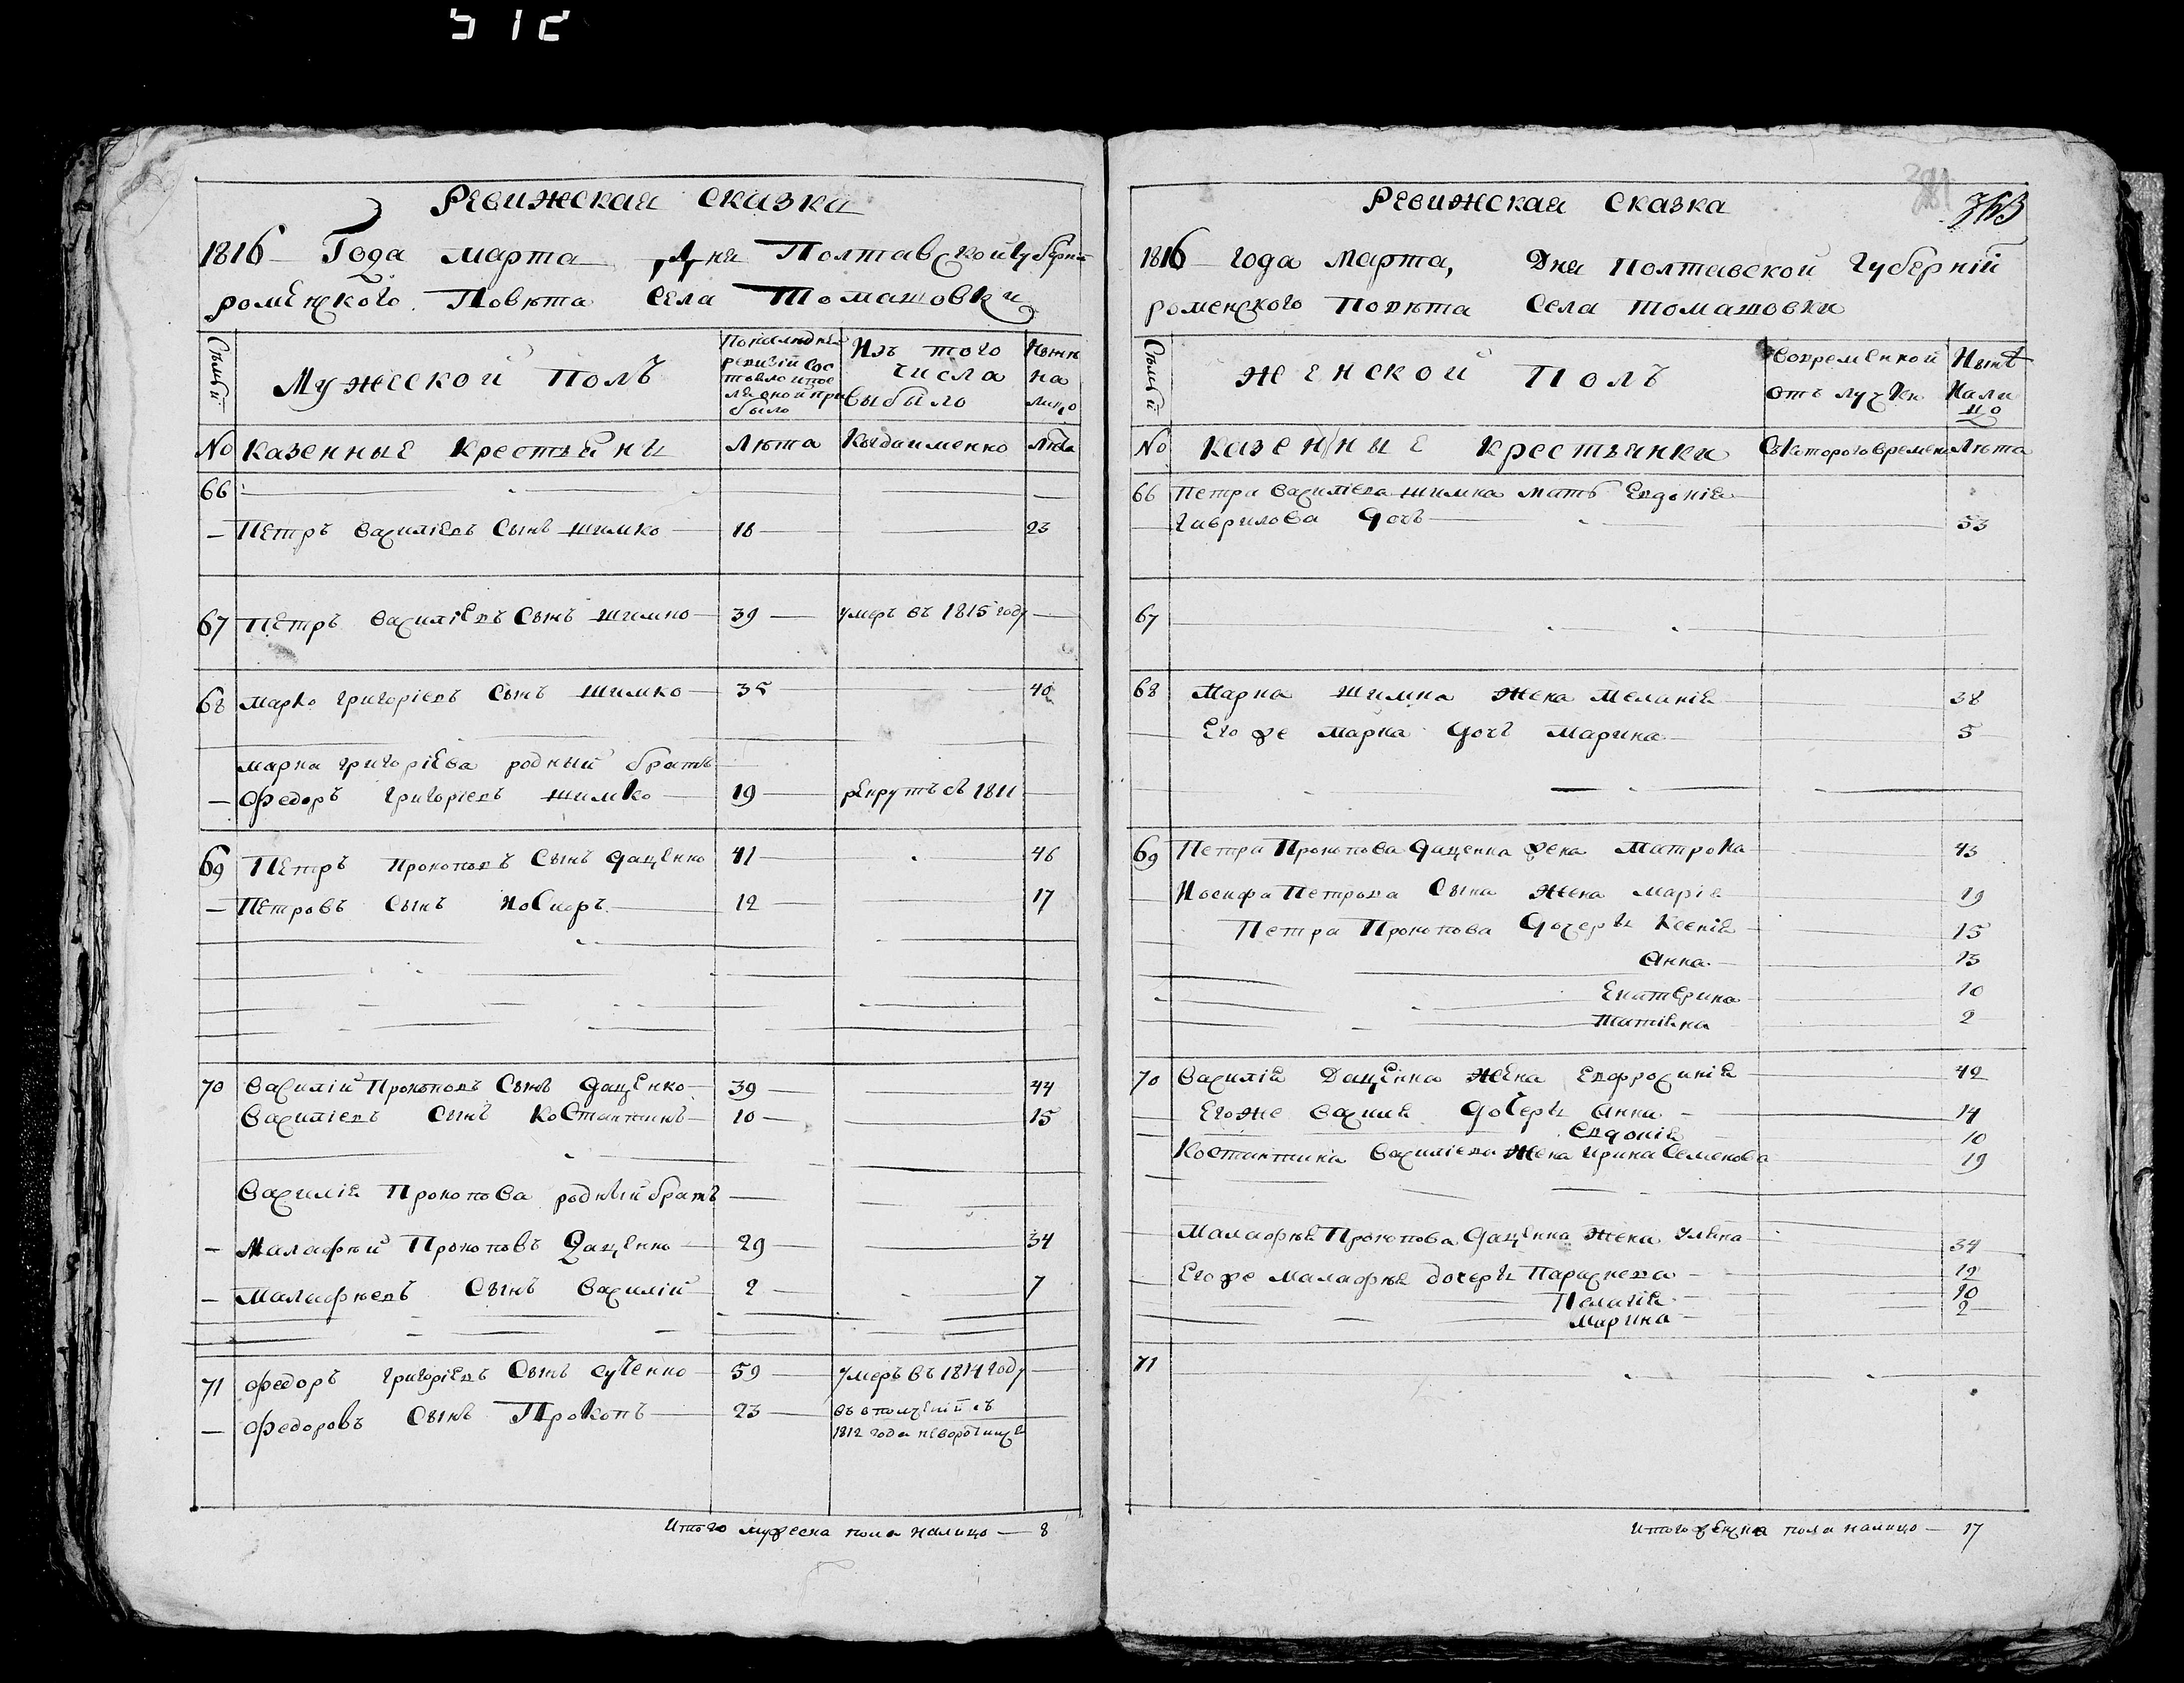 512
Ревижская сказка
1816 Года марта дня Полтавской губерни
роменского Повѣта Села Томашовки
Семьи
Мужеской полъ
По последней ревизій состояло и после оной прибыло
Изъ того числа выбыло
Нынѣ на лицо
№ Казенные Крестьяни Лѣта Когдаименно Лѣта
66
Петръ Василіевъ Сынъ шимко 18 23
67 Петръ Василіевъ Сынъ шимко 39 умеръ въ 1815 году
68 Марко григоріевъ Сынъ шимко 35 40
марка григоріева родный братъ
Федоръ григоріевъ шимко 19 рекрутъ въ 1811
69 Петръ Прокоповъ Сынъ даценко 41 46
Петровъ Сынъ Иосифъ 12 17
70 Василій Прокоповъ Сынъ даценко 39 44
Василіевъ Сынъ Костантинъ 10 15
Василія Прокопова родный братъ
Малафѣй Прокоповъ Даценко 29 34
Малафѣевъ Сынъ Василій 2 7
71 Федоръ григоріевъ Сынъ сученко 59 умеръ въ 1814 году
Федоровъ Сынъ Прокопъ 23 въ ополченій съ
1812 года неворотился
Итого мужеска пола налицо — 8
381
363
Ревижская Сказка
1816 года марта, Дня Полтавской Губерній
роменского Повѣта Села томашовки
Семьи
женской полъ
Вовременной отълучки
Нынѣ Налицо
№ казенные крестьянки Съкоторого времени Лѣта
66 Петра Василіева шимка мать Евдокія
Гаврилова дочь 53
67
68 Марка шимка жена Меланія 38
Его же марка дочь Марина 5
69 Петра Прокопова даценка жена Матрона 43
Иосифа Петрова Сына жена Марія 19
Петра Прокопова дочеры Ксенія 15
Анна 13
Екатерина 10
Татіяна 2
70 Василія Даценка жена Евфросинія 42
Его же Василія дочеры Анна 14
Евдокія 10
Костантина Василіева жена ирина Семенова 19
Малафѣя Прокопова даценка жена Уляна 34
Его же малафѣя дочеры Параскева 12
Пелагія 10
марина 2
71
Итого женска пола налицо — 17